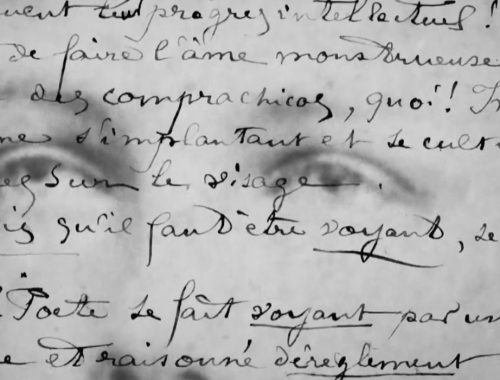 uent leur progrès intellectuel !
de faire l'âme monstrueuse
des comprachicos, quoi ! 
s'implantant et se cult
sur le visage.
qu'il faut être voyant, se
Poète se fait voyant par un
et raisonné dérèglement